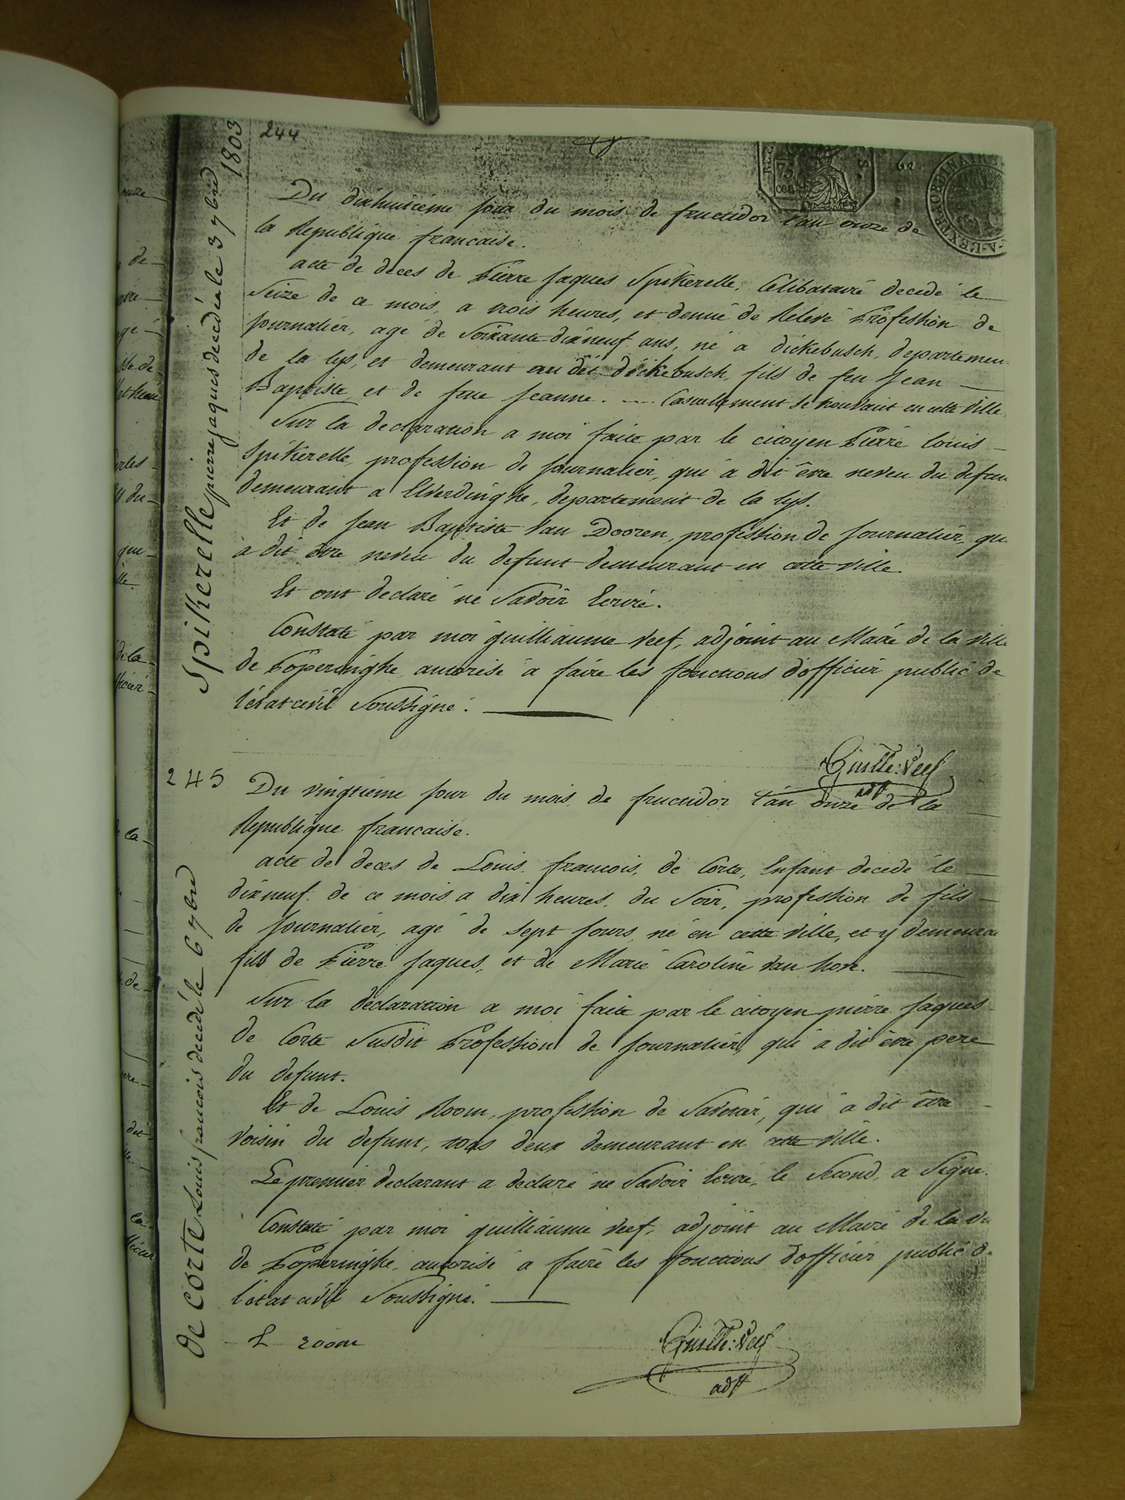 244
Spikerelle pierre jaques decedé le 3 7bre 1803
Du dixhuitieme jour du mois de fructidor l'an onze de
la Republique francaise.
acte de deces de Pierre Jaques Spikerelle, Celibataire decedé le
Seize de ce mois, a trois heures, et demie de Relevé Profession de
Journalier, age de Soixante dixneuf ans, né a dickebusch, departemen
de la lys, et demeurant au dit dickebusch, fils de feu Jean
Baptiste et de feue Jeanne. Casuellement se trouvant en cette ville
Sur la declaration a moi faite par le citoyen Pierre Louis
Spikerelle, profession de Journalier, qui a dit être neveu du defun
demeurant a Elverdinghe, departement de la lys.
Et de Jean Baptiste Van Dooren, profession de Journalier, qu
a dit être neveu du defunt demeurant en cette ville.
Et ont declaré ne Savoir Ecrire.
Constaté par moi guilliaume Veef, adjoint au Maire de la Ville
de Poperinghe, autorisé a faire les fonctions d'officier public de
l'état civil Soussigné.
Guille: Veef
adjt
245
de Corte Louis francois decedé le 6 7bre
Du vingtieme jour du mois de fructidor l'an onze de la
Republique francaise.
acte de deces de Louis francois de Corte, Enfant decedé le
dixneuf de ce mois a dix heures du Soir, profession de fils
de Journalier, agé de Sept Jours, né en cette ville, et y demeura
fils de Pierre Jaques, et de Marie Caroline Van hove.
Sur la declaration a moi faite par le citoyen pierre Jaques
de Corte Susdit Profession de Journalier, qui a dit être pere
du defunt.
Et de Louis Room, profession de qui a dit être
Voisin du defunt, tous deux demeurant en cette Ville.
Le premier declarant a declaré ne Savoir Ecrire, le Second, a Signé.
Constaté par moi guilliaume Veef, adjoint au Maire de la Vi
de Poperinghe, autorisé a faire les fonctions d'officier public de
l'état civil Soussigné.
L room
Guille: Veef
adjt